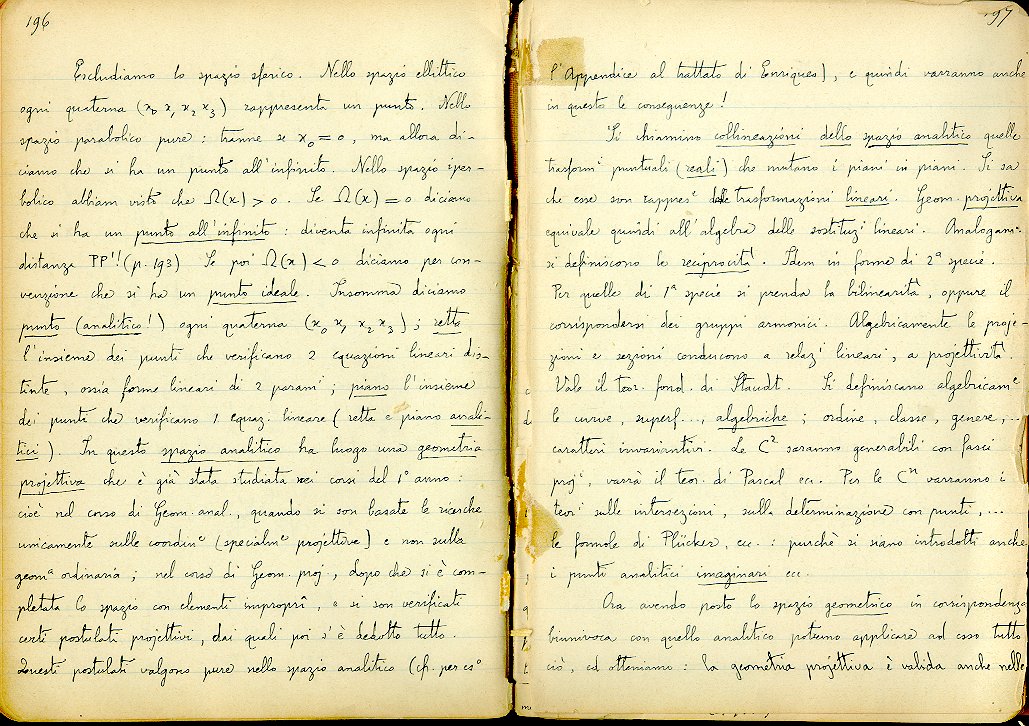 196
Escludiamo lo spazio sferico. Nello spazio ellittico
ogni quaterna (x₀ x₁ x₂ x₃) rappresenta un punto. Nello
spazio parabolico pure: tranne se x₀ = 0, ma allora di-
ciamo che si ha un punto all'infinito. Nello spazio iper-
bolico abbiam visto che Ω(x) > 0. Se Ω(x) = 0 diciamo
che si ha un punto all'infinito: diventa infinita ogni
distanza PP'! (p. 193) Se poi Ω(x) < 0 diciamo per con-
venzione che si ha un punto ideale. Insomma diciamo
punto (analitico!) ogni quaterna (x₀ x₁ x₂ x₃); retta
l'insieme dei punti che verificano 2 equazioni lineari dis-
tinte, ossia forme lineari di 2 parami; piano l'insieme
dei punti che verificano 1 equazi lineare (retta e piano anali-
tici). In questo spazio analitico ha luogo una geometria
projettiva che è già stata studiata nei corsi del 1° anno:
cioè nel corso di Geom. anal., quando si son basate le ricerche
unicamente sulle coordinᵉ (specialmᵉ projettive) e non sulla
geomᵃ ordinaria; nel corso di Geom. proj., dopo che si è com-
pletata lo spazio con elementi improprî, e si son verificati
certi postulati projettivi, dai quali poi s'è dedotto tutto.
Questi postulati valgono pure nello spazio analitico (cfr. per es°
197
l'Appendice al trattato di Enriques), e quindi varranno anche
in questo le conseguenze!
Si chiamino collineazioni dello spazio analitico quelle
trasformi puntuali (reali) che mutano i piani in piani. Si sa
che esse son rappresᵉ dalle trasformazioni lineari. Geom. projettiva
equivale quindi all'algebra delle sostituzi lineari. Analogam-
si definiscono le reciprocità. Idem in forme di 2ª specie.
Per quelle di 1ª specie si prenda la bilinearità, oppure il
corrispondersi dei gruppi armonici. Algebricamente le proje-
zioni e sezioni conducono a relazi lineari, a projettività.
Vale il teor. fond. di Staudt. Si definiscano algebricamᵉ
le curve, superf..., algebriche; ordine, classe, genere,...
caratteri invariantivi. Le C² saranno generabili con fasci
proji, varrà il teor. di Pascal ecc. Per le Cⁿ varranno i
teori sulle intersezioni, sulla determinazione con punti, ...
le formole di Plücker, ecc.: purchè si siano introdotti anche
i punti analitici imaginari ecc.
Ora avendo posto lo spazio geometrico in corrispondenza
biunivoca con quello analitico potremo applicare ad esso tutto
ciò, ed otteniamo: la geometria projettiva è valida anche nelle